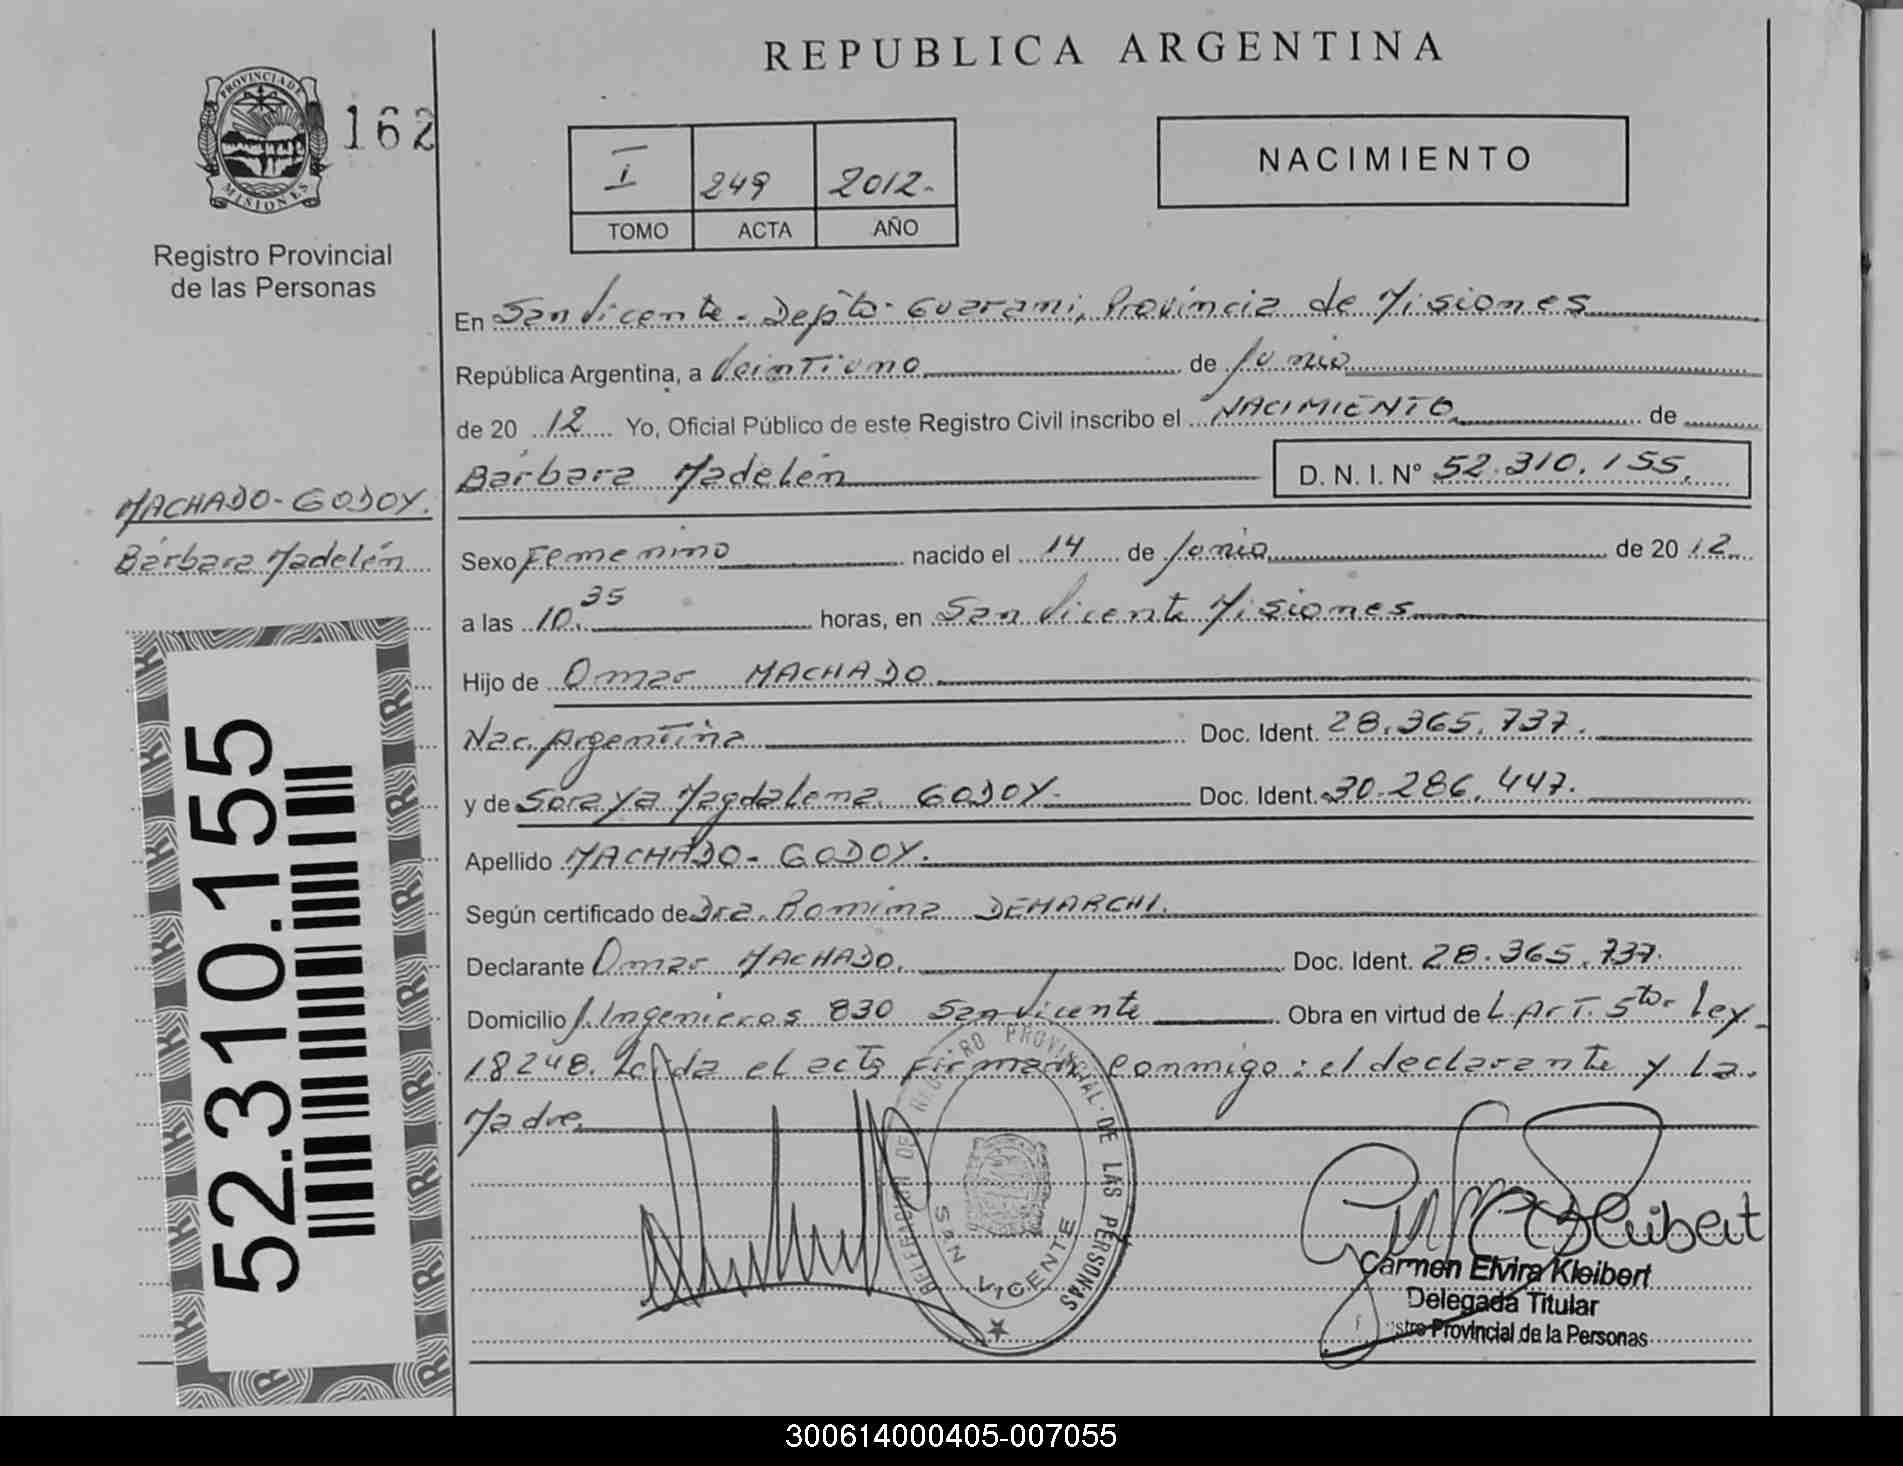 REPUBLICA ARGENTINA
PROVINCIA DE
MISIONES
162
Registro Provincial
de las Personas
I 249 2012.-
TOMO ACTA AÑO
NACIMIENTO
En San Vicente - Depto. Guaraní, Provincia de Misiones
República Argentina, a Veintiuno de Junio
de 20 12 Yo, Oficial Público de este Registro Civil inscribo el NACIMIENTO de
Bárbara Madelén D. N. I. N° 52.310.155.
MACHADO-GODOY.
Bárbara Madelén
Sexo Femenino nacido el 14 de Junio de 20 12
a las 10.35 horas, en San Vicente Misiones
Hijo de Omar MACHADO
Nac. Argentina Doc. Ident. 28.365.737.
y de Soraya Magdalena GODOY Doc. Ident. 30.286.447.
Apellido MACHADO - GODOY.
Según certificado de Dra. Romina DEMARCHI.
Declarante Omar MACHADO. Doc. Ident. 28.365.737.
Domicilio J. Ingenieros 830 San Vicente Obra en virtud de L. Art. 5to. Ley
18248. Leída el acta firman conmigo: el declarante y La
Madre.
52.310.155
REGISTRO PROVINCIAL DE LAS PERSONAS
DELEGACION
SAN VICENTE
Carmen Elvira Kleibert
Delegada Titular
Provincial de la Personas
300614000405-007055